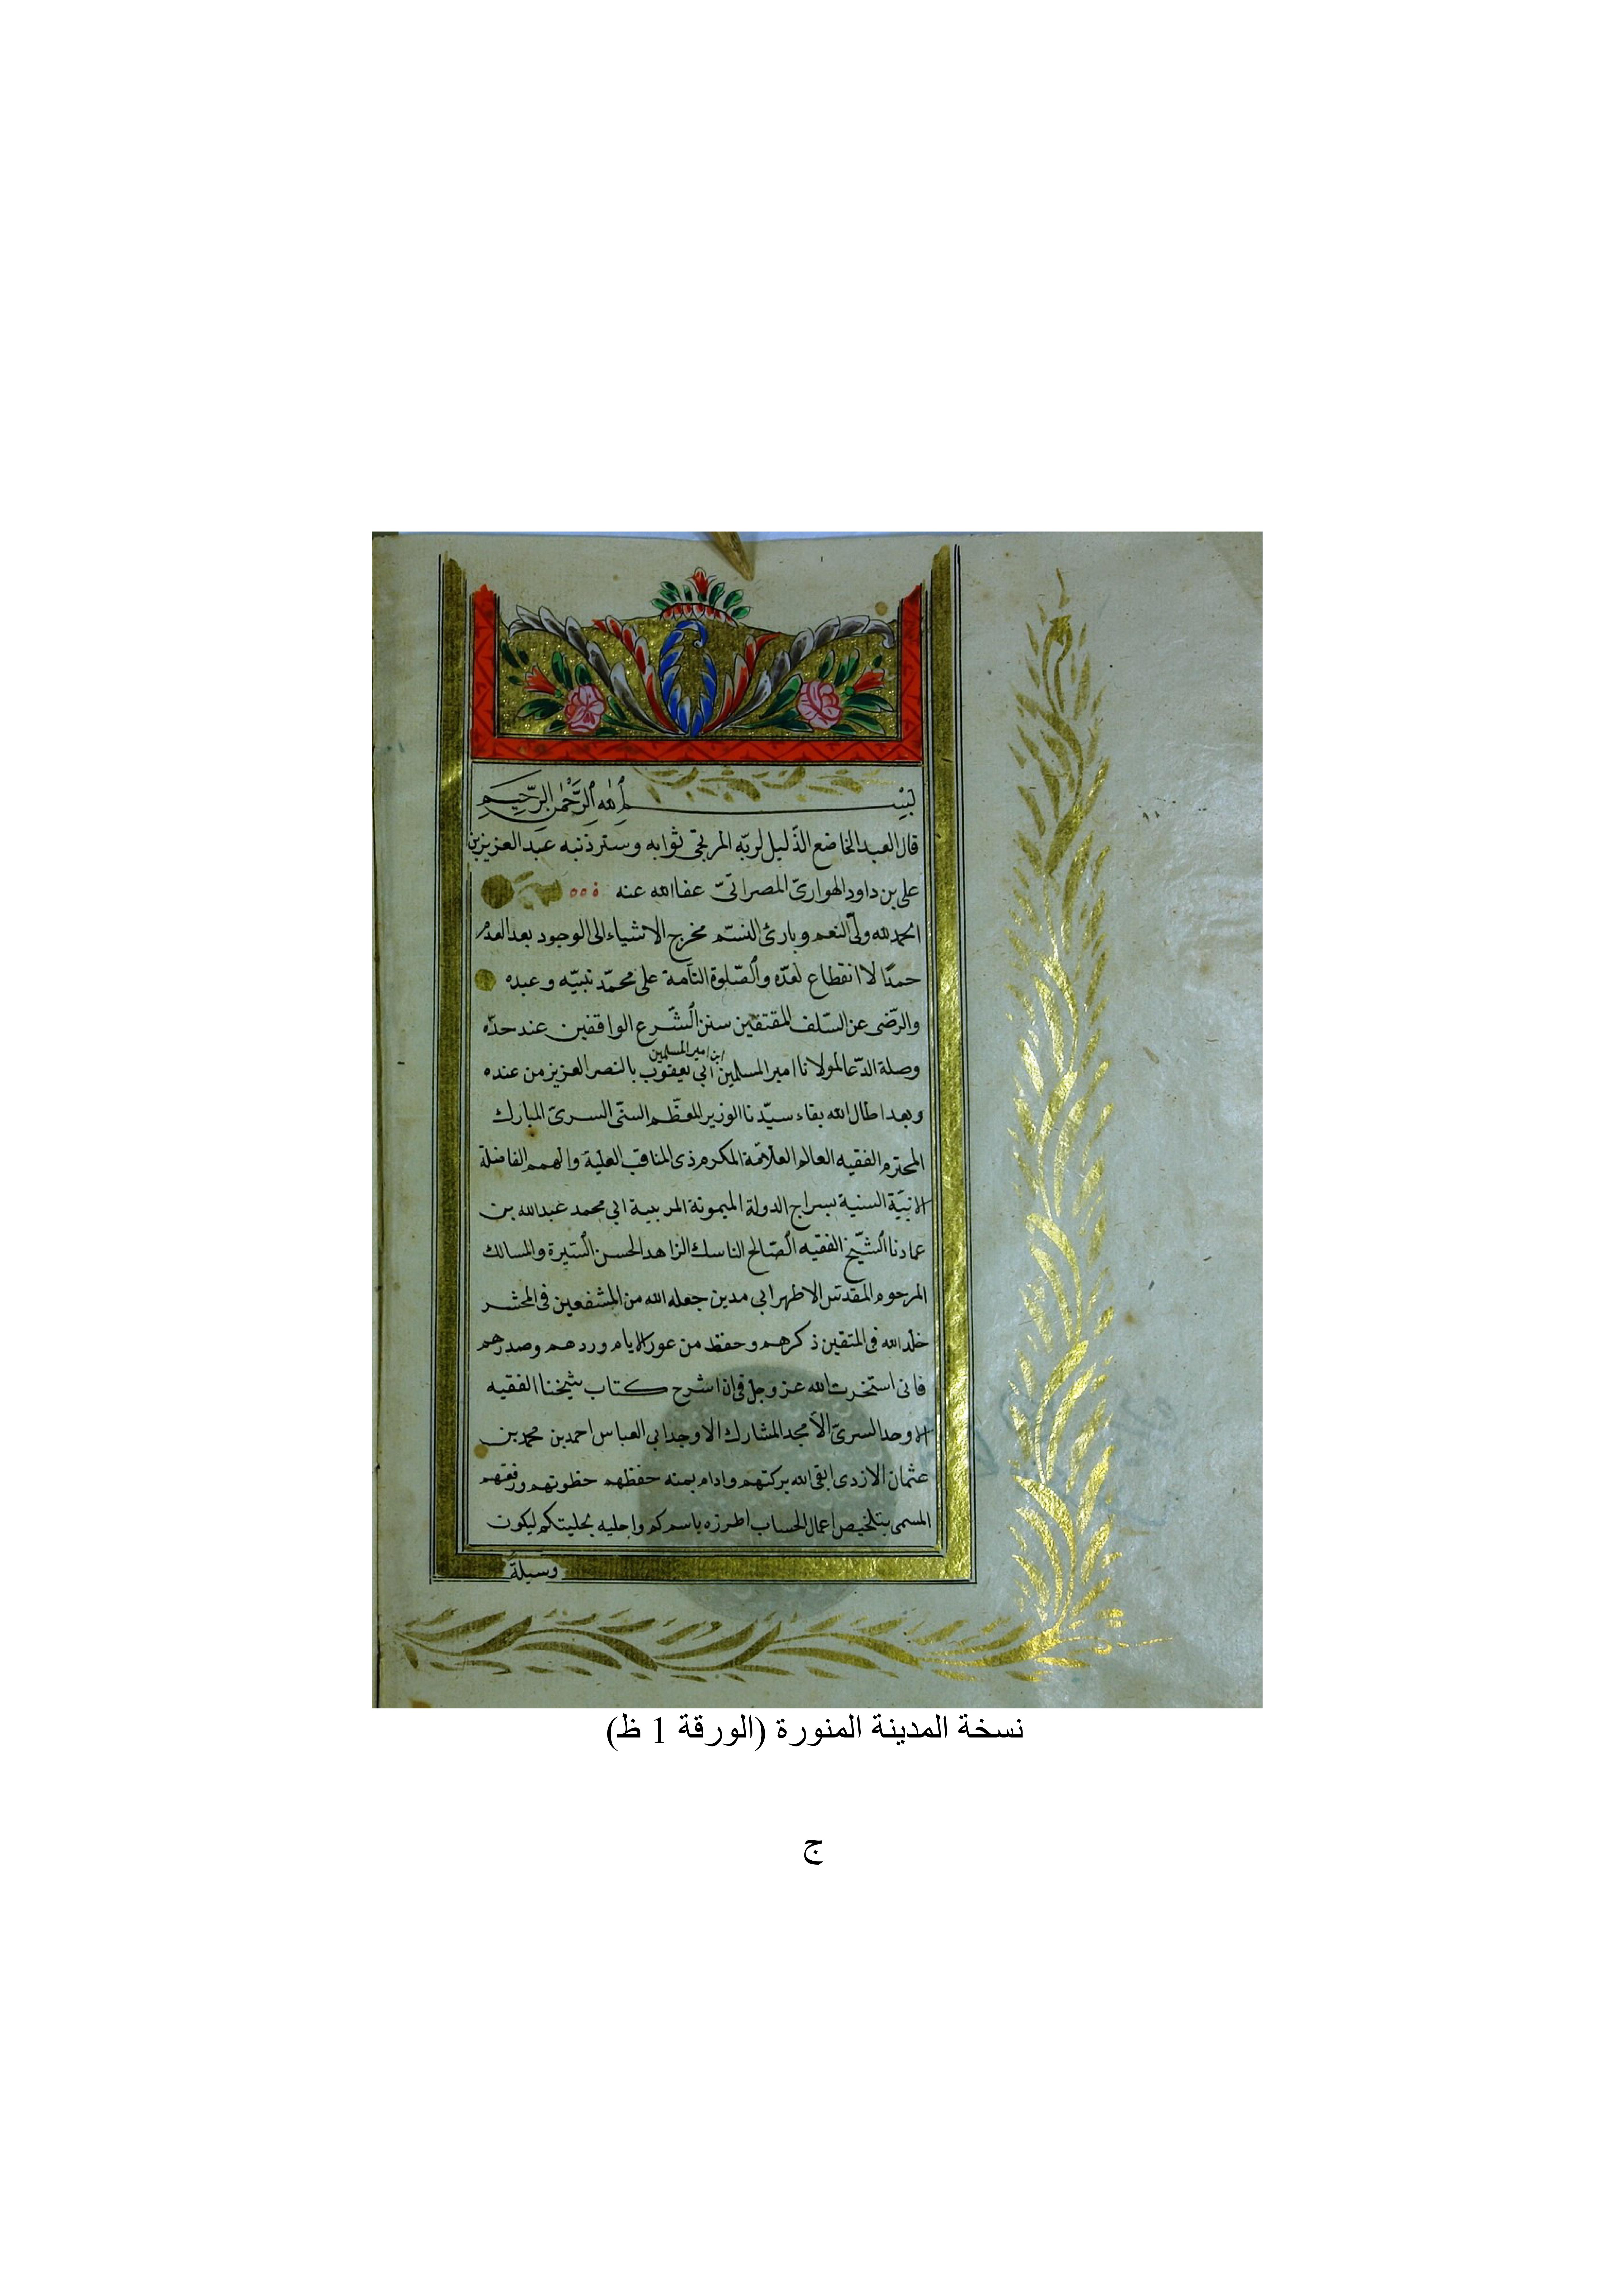 بسم الله الرحمن الرحيم
قال العبد الخاضع الذّليل لربّه المرتجى ثوابه وستر ذنبه عبد العزيز بن
على بن داود الهوارىّ المصراتىّ عفا الله عنه
الحمد لله ولىّ النعم وبارئ النسّم مخرج الاشياء الى الوجود بعد العدم
حمدًا لا انقطاع لعدّه والصّلوة التامة على محمّد نبيّه وعبده
والرّضى عن السّلف المقتفين سنن الشّرع الواقفين عند حدّه
ابن امير المسلمين
وصلة الدّعا لمولانا امير المسلمين ابي يعقوب بالنصر العزيز من عنده
وبعد اطال الله بقاء سيّدنا الوزير المعظّم السنّى السرىّ المبارك
المحترم الفقيه العالم العلاّمة المكرم ذى المناقب العلية والهمم الفاضلة
السنية سراج الدولة الميمونة ابي محمد عبد الله بن
عمادنا الشّيخ الفقيه الصّالح الناسك الزاهد الحسن السّيرة والمسالك
المرحوم المقدّس الاطهر ابي مدين جعله الله من المشفعين فى المحشر
خلّد الله فى المتقين ذكرهم وحفظ من الايام وردهم وصدرهم
فانى استخرت الله عز وجل فى ان اشرح كتاب شيخنا الفقيه
الاوحد السرىّ الأمجد المشارك الاوجد ابي العباس احمد بن محمد بن
عثمان الازدى ابقى الله بركتهم وادام بمنه حفظهم حظوتهم ورفعتهم
المسمى بتلخيص اعمال الحساب اطرزه باسمكم واحليه بحليتكم ليكون
وسيلة
نسخة المدينة المنورة (الورقة 1 ظ)
ج